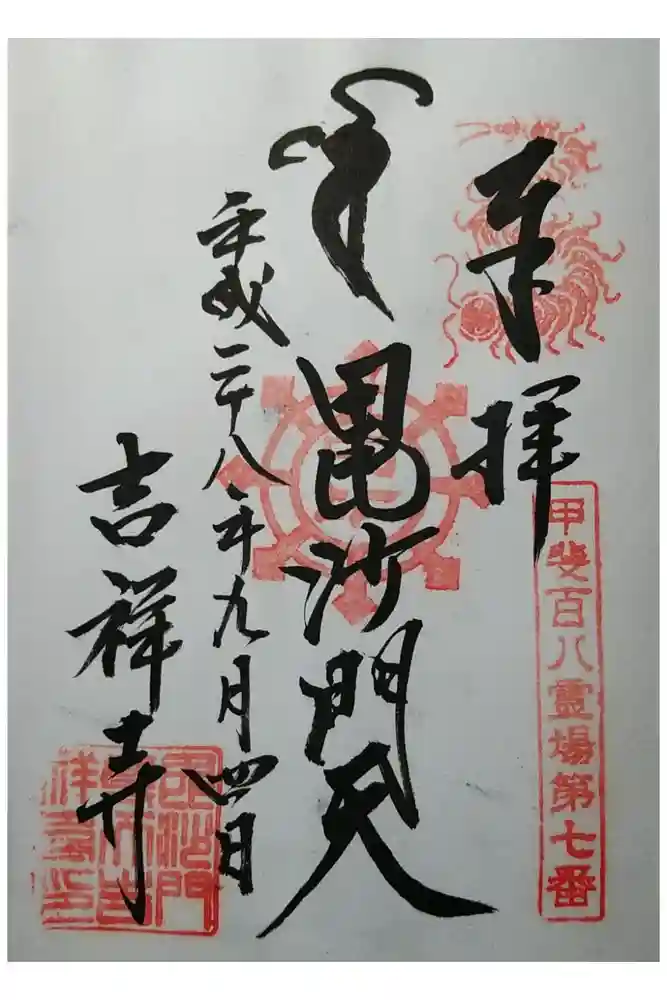 奉拝
甲斐百八霊場第七番
毘沙門天
平成二十八年九月四日
吉祥寺